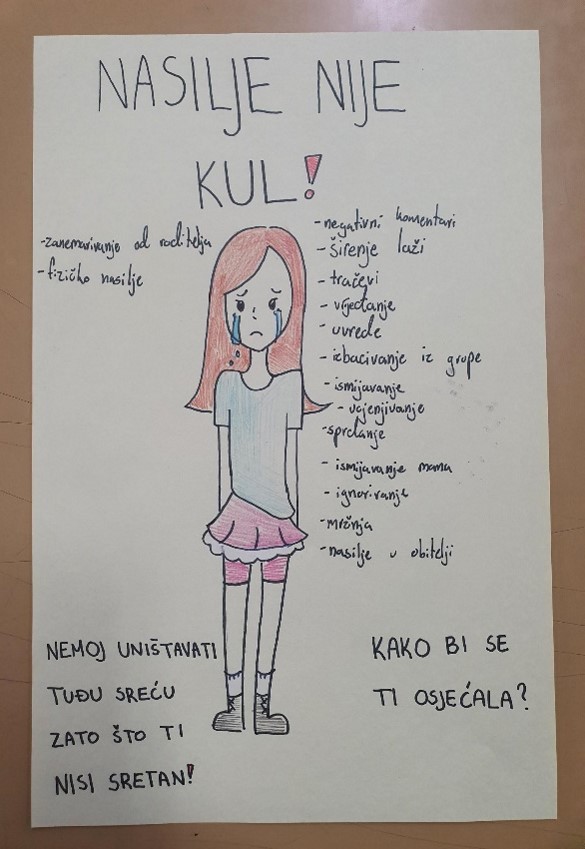 NASILJE NIJE
KUL!
-zanemarivanje od roditelja
-fizičko nasilje
-negativni komentari
-širenje laži
-tračevi
-vrjeđanje
-uvrede
-izbacivanje iz grupe
-ismijavanje
-ucjenjivanje
-sprdanje
-ismijavanje mama
-ignoriranje
-mržnja
-nasilje u obitelji
NEMOJ UNIŠTAVATI
TUĐU SREĆU
ZATO ŠTO TI
NISI SRETAN!
KAKO BI SE
TI OSJEĆALA?